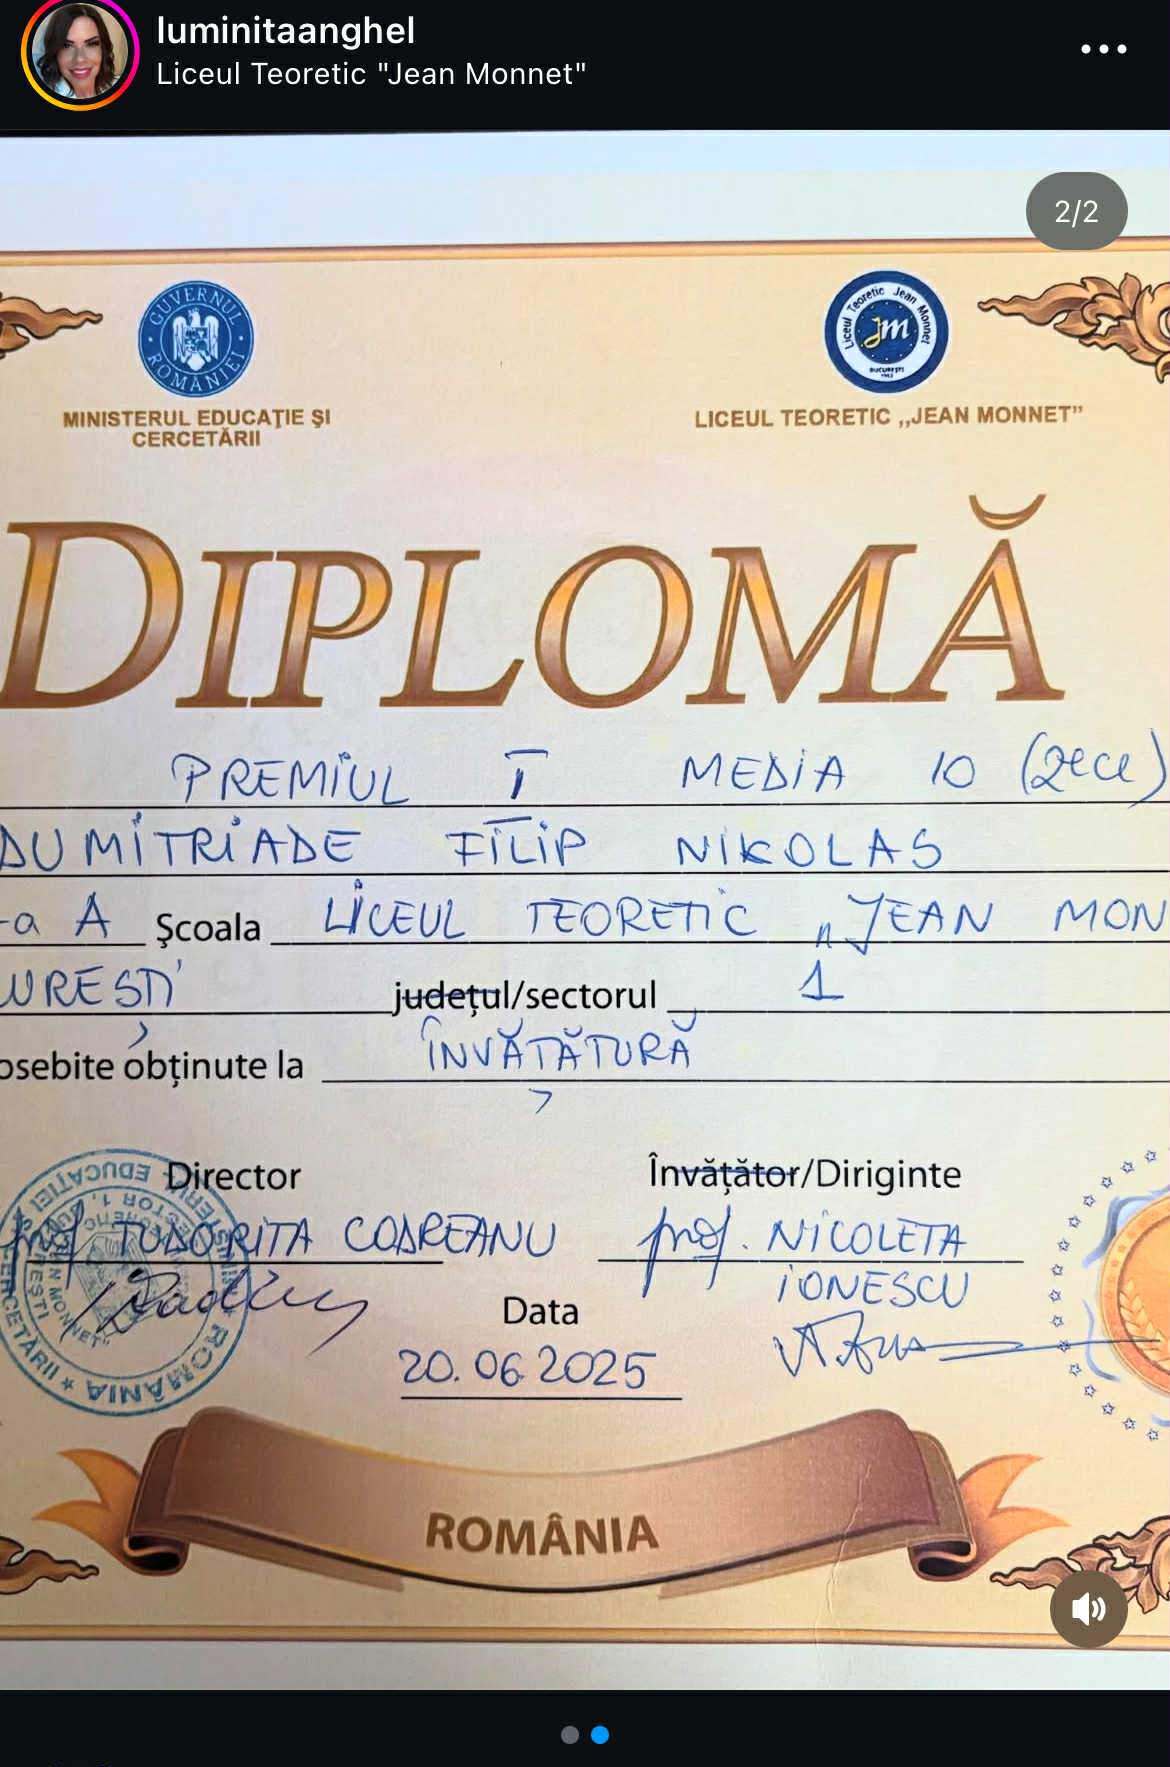 luminitaanghel
Liceul Teoretic "Jean Monnet"
2/2
GUVERNUL ROMÂNIEI
Liceul Teoretic Jean Monnet
jm
BUCUREȘTI
MINISTERUL EDUCAŢIE ŞI
CERCETĂRII
LICEUL TEORETIC „JEAN MONNET”
DIPLOMĂ
PREMIUL I MEDIA 10 (zece)
DUMITRIADE FILIP NIKOLAS
-a A Şcoala LICEUL TEORETIC „JEAN MON
UREȘTI județul/sectorul 1
osebite obținute la ÎNVĂȚĂTURĂ
Director Învățător/Diriginte
prof. TUDORIȚA CODREANU prof. NICOLETA
IONESCU
Data
20.06.2025
ROMÂNIA